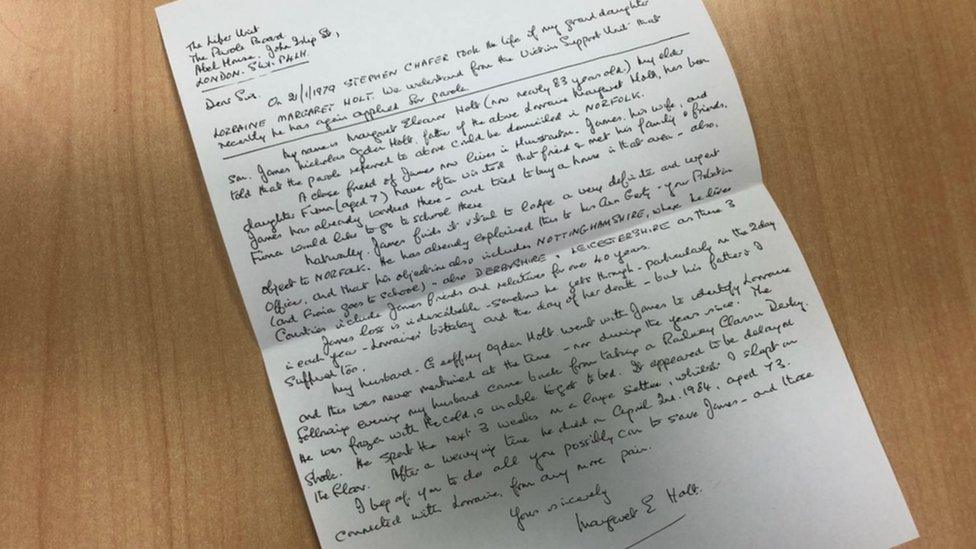 The Lifer Unit
The Parole Board
Abel House, John Islip St,
LONDON. SW1. P4LH.
Dear Sirs.
On 21/1/1979 STEPHEN CHAFER took the life of my grand daughter
LORRAINE MARGARET HOLT. We understand from the Victim Support Unit that
recently he has again applied for parole.
My name is Margaret Eleanor Holt (now nearly 83 years old.) My elder
son. James Nicholas Ogden Holt, father of the above Lorraine Margaret Holt, has been
told that the parole referred to above could be domiciled in NORFOLK.
A close friend of James now lives in Hunstanton. James, his wife, and
daughter Fiona (aged 7) have often visited that friend & met his family & friends,
James has already worked there - and tried to buy a house in that area - also,
Fiona would like to go to school there
Naturally, James finds it vital to lodge a very definite and urgent
object to NORFOLK. He has already explained this to his - your Probation
Officer, and that his objections also includes NOTTINGHAMSHIRE, where he lives
(and Fiona goes to school) - also DERBYSHIRE & LEICESTERSHIRE as these 3
Counties include James friends and relatives for over 40 years.
James loss is indescribable - somehow he gets through - particularly on the 2 day
in each year - Lorraines' birthday and the day of her death - but his father & I
suffered too.
My husband - Geoffrey Ogden Holt went with James to identify Lorraine
and this was never mentioned at the time - nor during the years since. The
following evening my husband came back from taking a Railway Class in Derby.
He was frozen with the cold, & unable to get to bed. It appeared to be delayed
shock. He spent the next 3 weeks on a large settee, whilst I slept on
the floor. After a worrying time he died on April 2nd. 1984, aged 73.
I beg of you to do all you possibly can to save James - and those
connected with Lorraine, from any more pain.
Yours sincerely
Margaret E Holt.